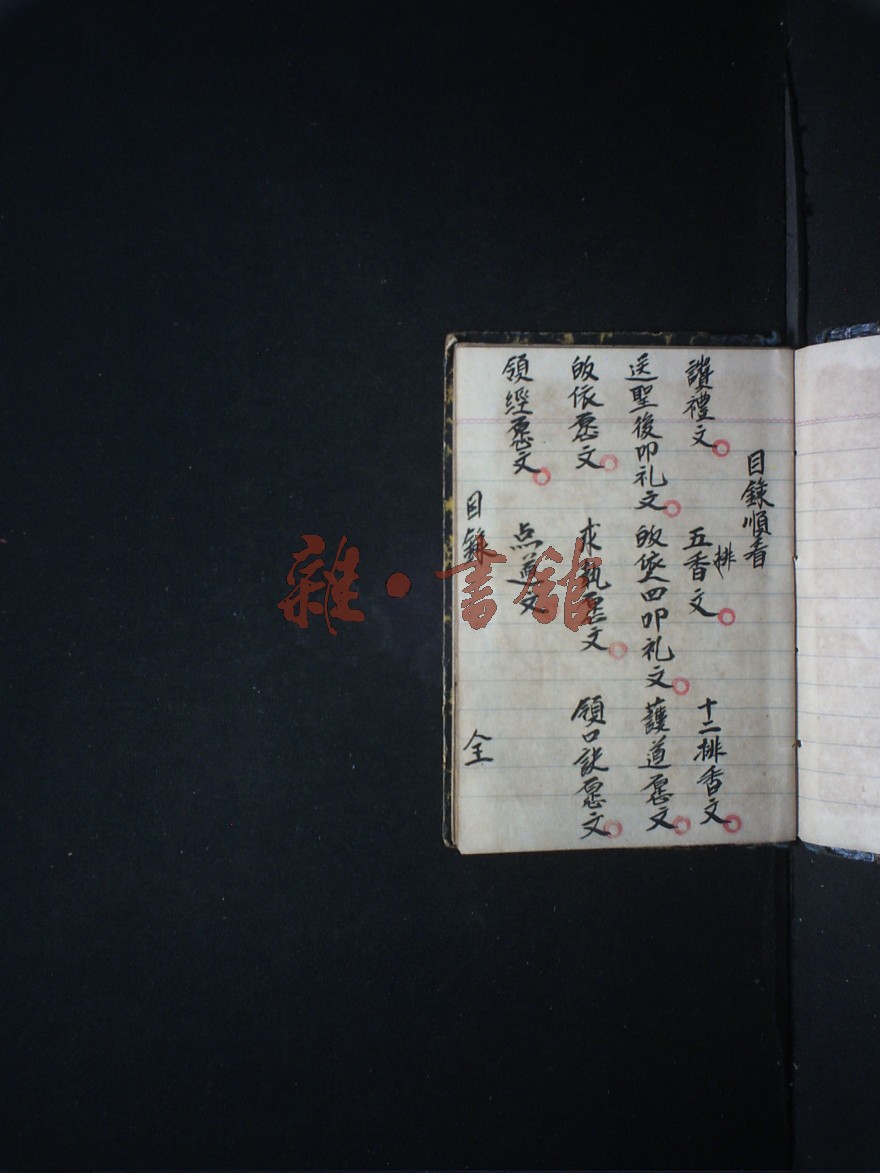 目錄順看
讃禮文 五排香文 十二排香文
送聖後叩礼文 皈依四叩礼文 護道愿文
皈依愿文 求執愿文 領口訣愿文
領經愿文 点道文
目錄 全
雜·書館